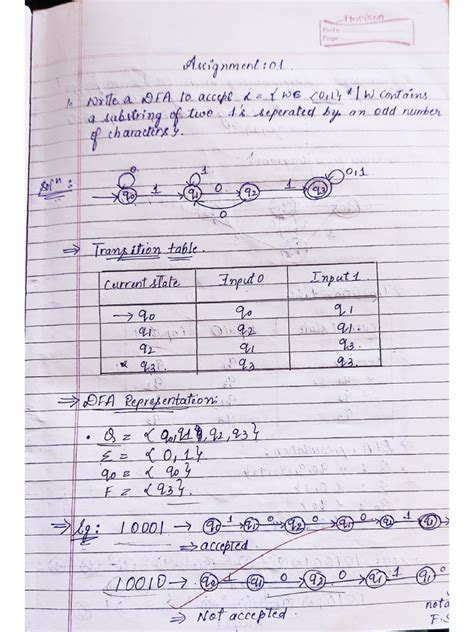 Date
Page
Assignment: 01
1. Write a DFA to accept L = { WƐ {0,1}* | W contains
a substring of two 1s seperated by an odd number
of characters }.
Solⁿ: → q0 1 q1 0 q2 1 q3 0,1
0 1 0
⇒ Transition table.
Current state Input 0 Input 1
→ q0 q0 q1
q1 q2 q1
q2 q1 q3
* q3 q3 q3
⇒ DFA Representation:
• Q = { q0, q1, q2, q3 }
Σ = { 0, 1 }
q0 = { q0 }
F = { q3 }
⇒ Eg: 10001 → q0 1 q1 0 q2 0 q1 0 q1 1 q3
⇒ accepted
10010 → q0 1 q1 0 q2 0 q1 1 q1 0
⇒ Not accepted